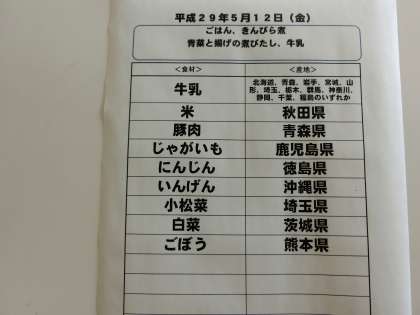 平成29年5月12日（金）
ごはん、きんぴら煮
青菜と揚げの煮びたし、牛乳
＜食材＞ ＜産地＞
牛乳 北海道、青森、岩手、宮城、山
形、埼玉、栃木、群馬、神奈川、
静岡、千葉、福島のいずれか
米 秋田県
豚肉 青森県
じゃがいも 鹿児島県
にんじん 徳島県
いんげん 沖縄県
小松菜 埼玉県
白菜 茨城県
ごぼう 熊本県